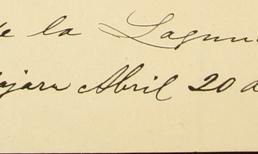 de la Lagun
ajara Abril 20 d